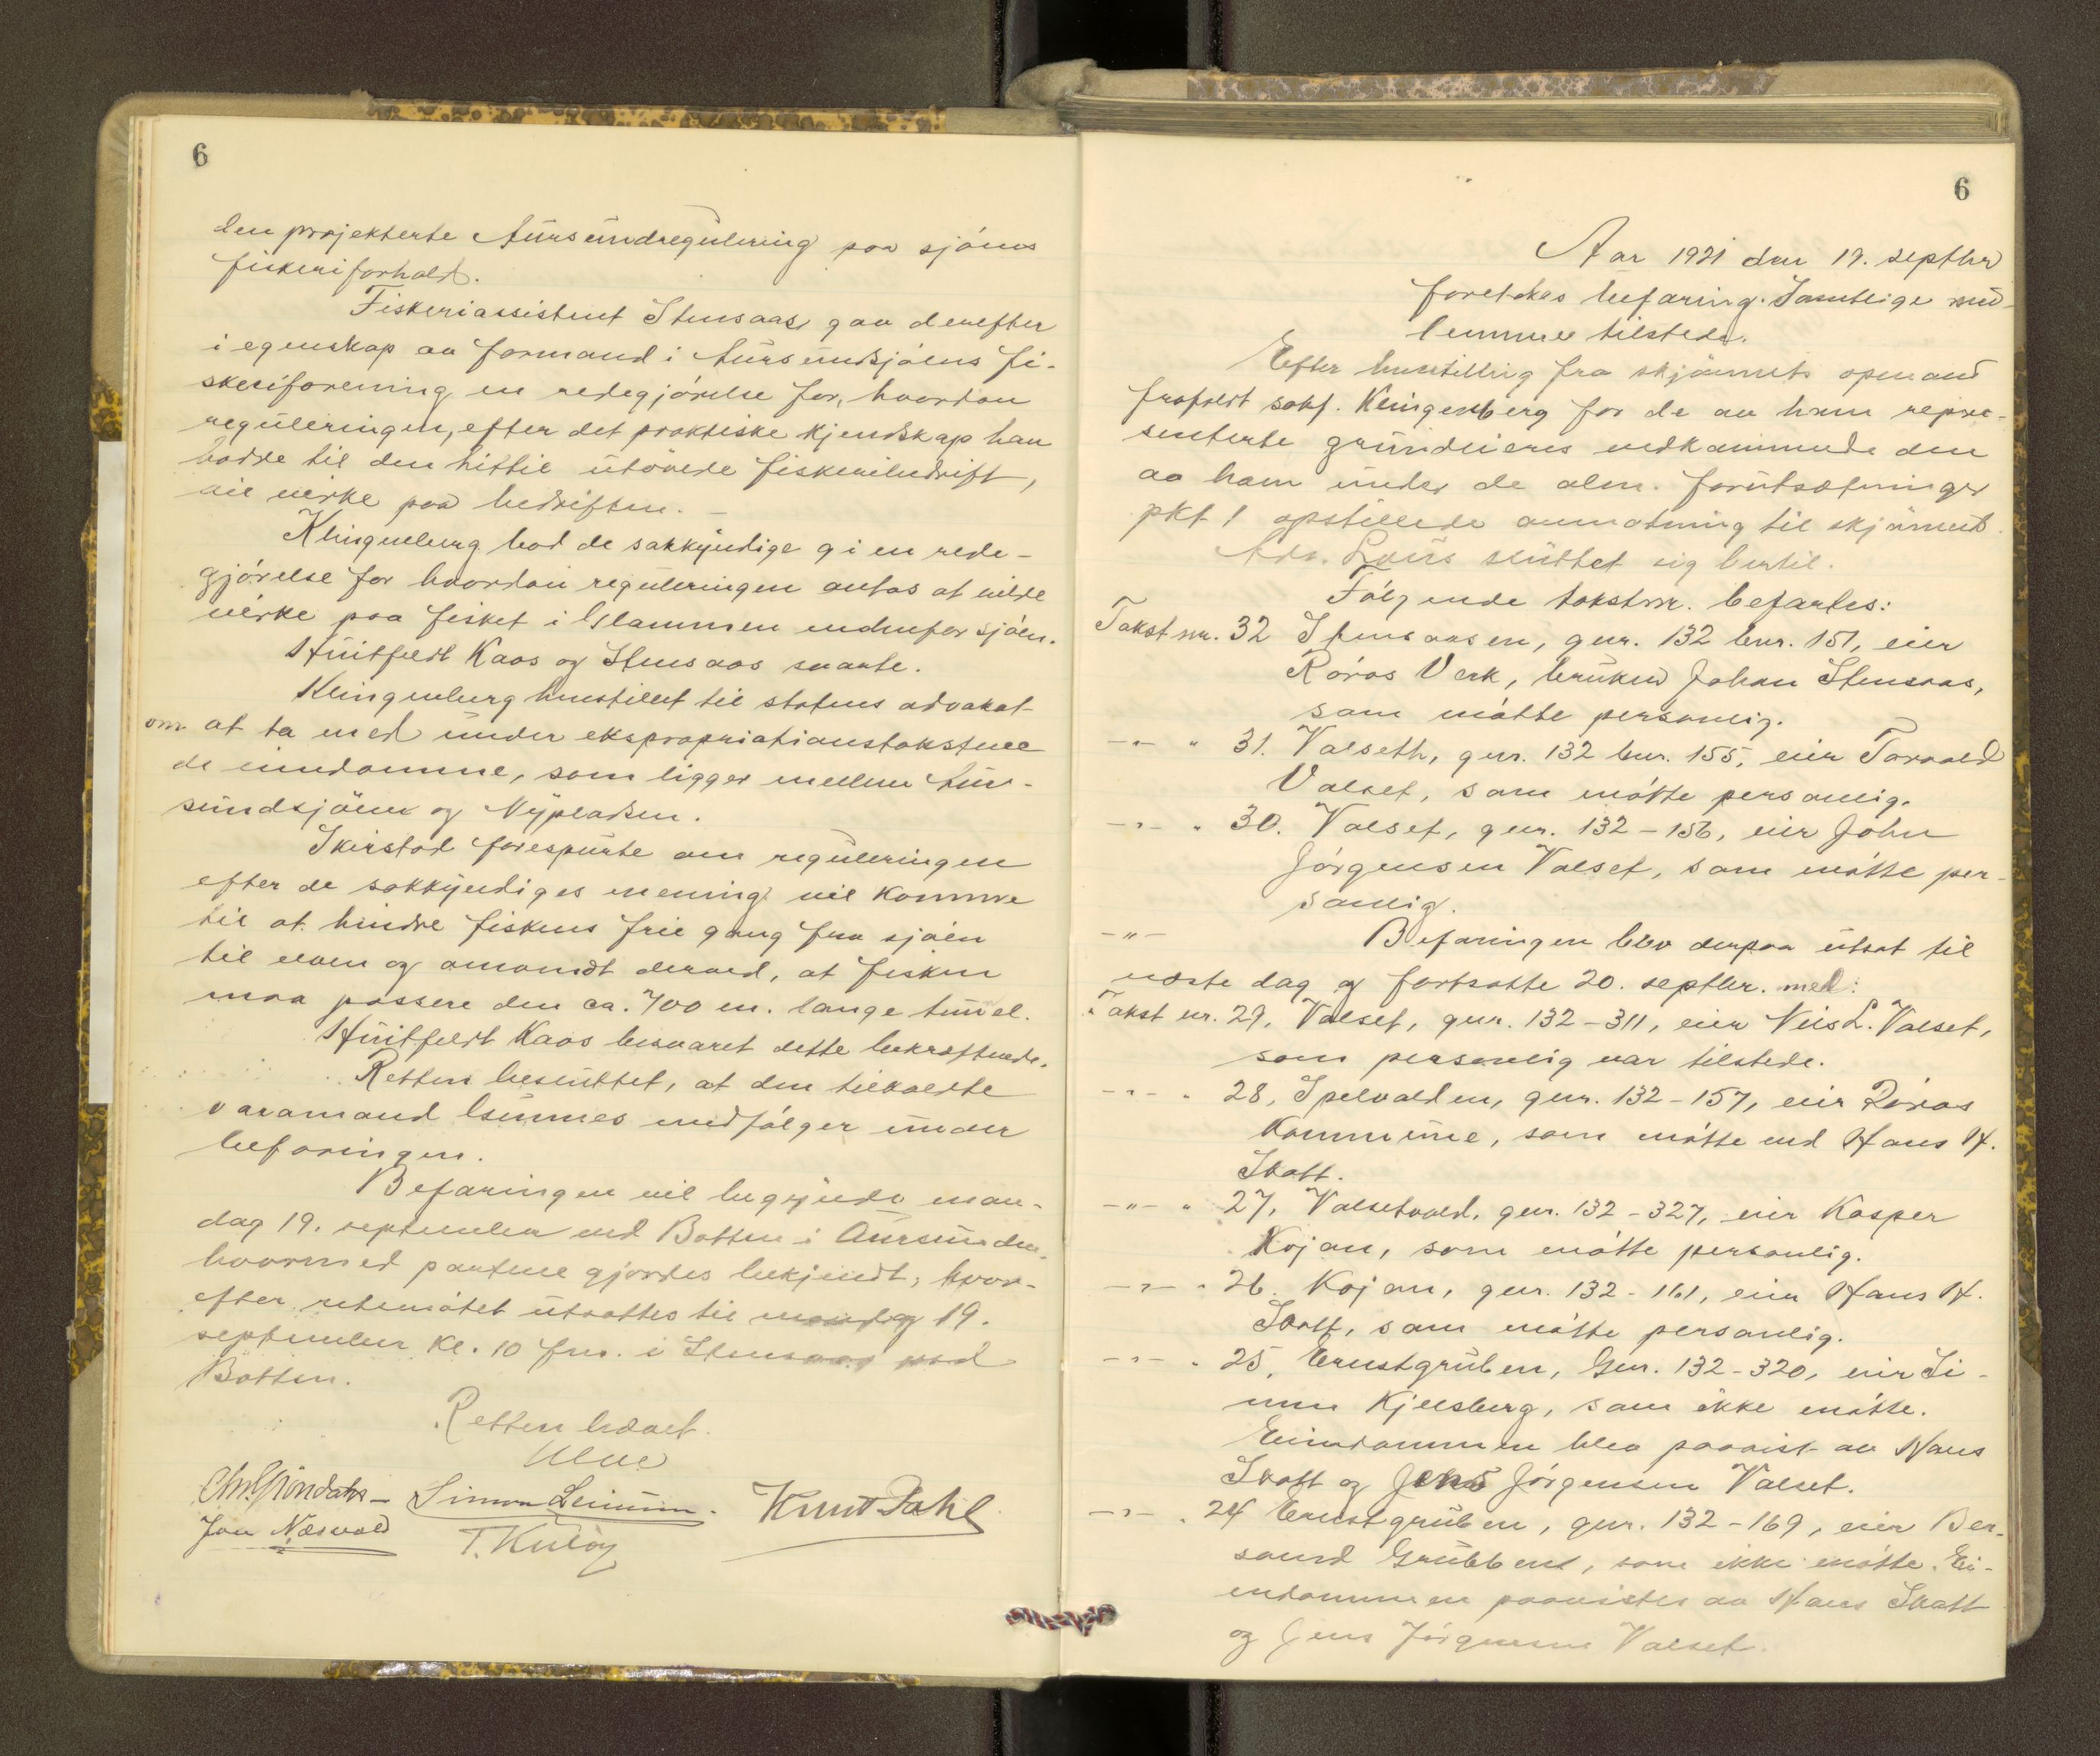 6
den projekterte Aursundregulering paa sjöens
fiskeriforhold.
Fiskeriassistent Stensaas gav derefter
i egenskap av formand i Aursundsjöens fi-
skeriforening en redegjörelse for, hvordan
reguleringen, efter det praktiske kjendskap han
hadde til den hittil utövede fiskeribedrift,
vil virke paa bedriften. —
Klingenberg bad de sakkyndige gi en rede-
gjörelse for hvordan reguleringen antas at vilde
virke paa fisket i Glommen nedenfor sjöen.
Huitfeldt Kaas og Stensaas svarte.
Klingenberg henstillet til statens advokat
om at ta med under ekspropriationstakstene
de eiendomme, som ligger mellem Aur-
sundsjöen og Nypladsen.
Skirstad forespurte om reguleringen
efter de sakkyndiges mening vil komme
til at hindre fiskens frie gang fra sjöen
til elven og omvendt derved, at fisken
maa passere den ca. 700 m. lange tunel.
Huitfeldt Kaas besvaret dette bekræftende.
Retten besluttet, at den tilkaldte
varamand Sunnes medfölger under
befaringen.
Befaringen vil begynde man-
dag 19. september ved Botten i Aursunden,
hvormed partene gjordes bekjendt, hvor-
efter retsmötet utsattes til mandag 19.
september kl. 10 fm. i Stensaas ved
Botten.
Retten hævet.
Chr. Gröndahl – Simon Lemmen. Knut Dahl
Jon Næsvold T. Kulöy
6
Aar 1921 den 19. septbr
foretokes befaring. Samtlige med-
lemmer tilstede.
Efter henstilling fra skjönnets opmand
frafaldt sakf. Klingenberg for de av ham repræ-
senterte grundeieres vedkommende den
av ham under de alm. forutsætninger
pkt 1 opstillede anmodning til skjönnet.
Adv. Lous sluttet sig hertil.
Fölgende takstnr. befartes:
Takst nr. 32 Stensaasen, gnr. 132 bnr. 151, eier
Röros Verk, bruker Johan Stensaas,
som mötte personlig.
—"— " 31. Valseth, gnr. 132 bnr. 155, eier Torvald
Valset, som mötte personlig.
—"— " 30. Valset, gnr. 132 - 156, eier John
Jörgensen Valset, som mötte per-
sonlig.
—"— Befaringen blev derpaa utsat til
næste dag og fortsatte 20. septbr. med:
Takst nr. 29, Valset, gnr. 132 - 311, eier Nils L. Valset,
som personlig var tilstede.
—"— " 28, Spelvolden, gnr. 132 - 157, eier Röros
Kommune, som mötte ved Hans H.
Skott.
—"— " 27, Valsetvold, gnr. 132 - 327, eier Kasper
Kojan, som mötte personlig.
—"— " 26. Kojan, gnr. 132 - 161, eier Hans H.
Skott, som mötte personlig.
—"— " 25, Ernstgruben, Gnr. 132 - 320, eier Si-
mon Kjelsberg, som ikke mötte.
Eiendommen blev paavist av Hans
Skott og Jens Jörgensen Valset.
—"— " 24 Ernstgruben, gnr. 132 - 169, eier Ber-
Grubbens, som ikke mötte. Ei-
endommen paavistes av Hans Skott
og Jens Jörgensen Valset.